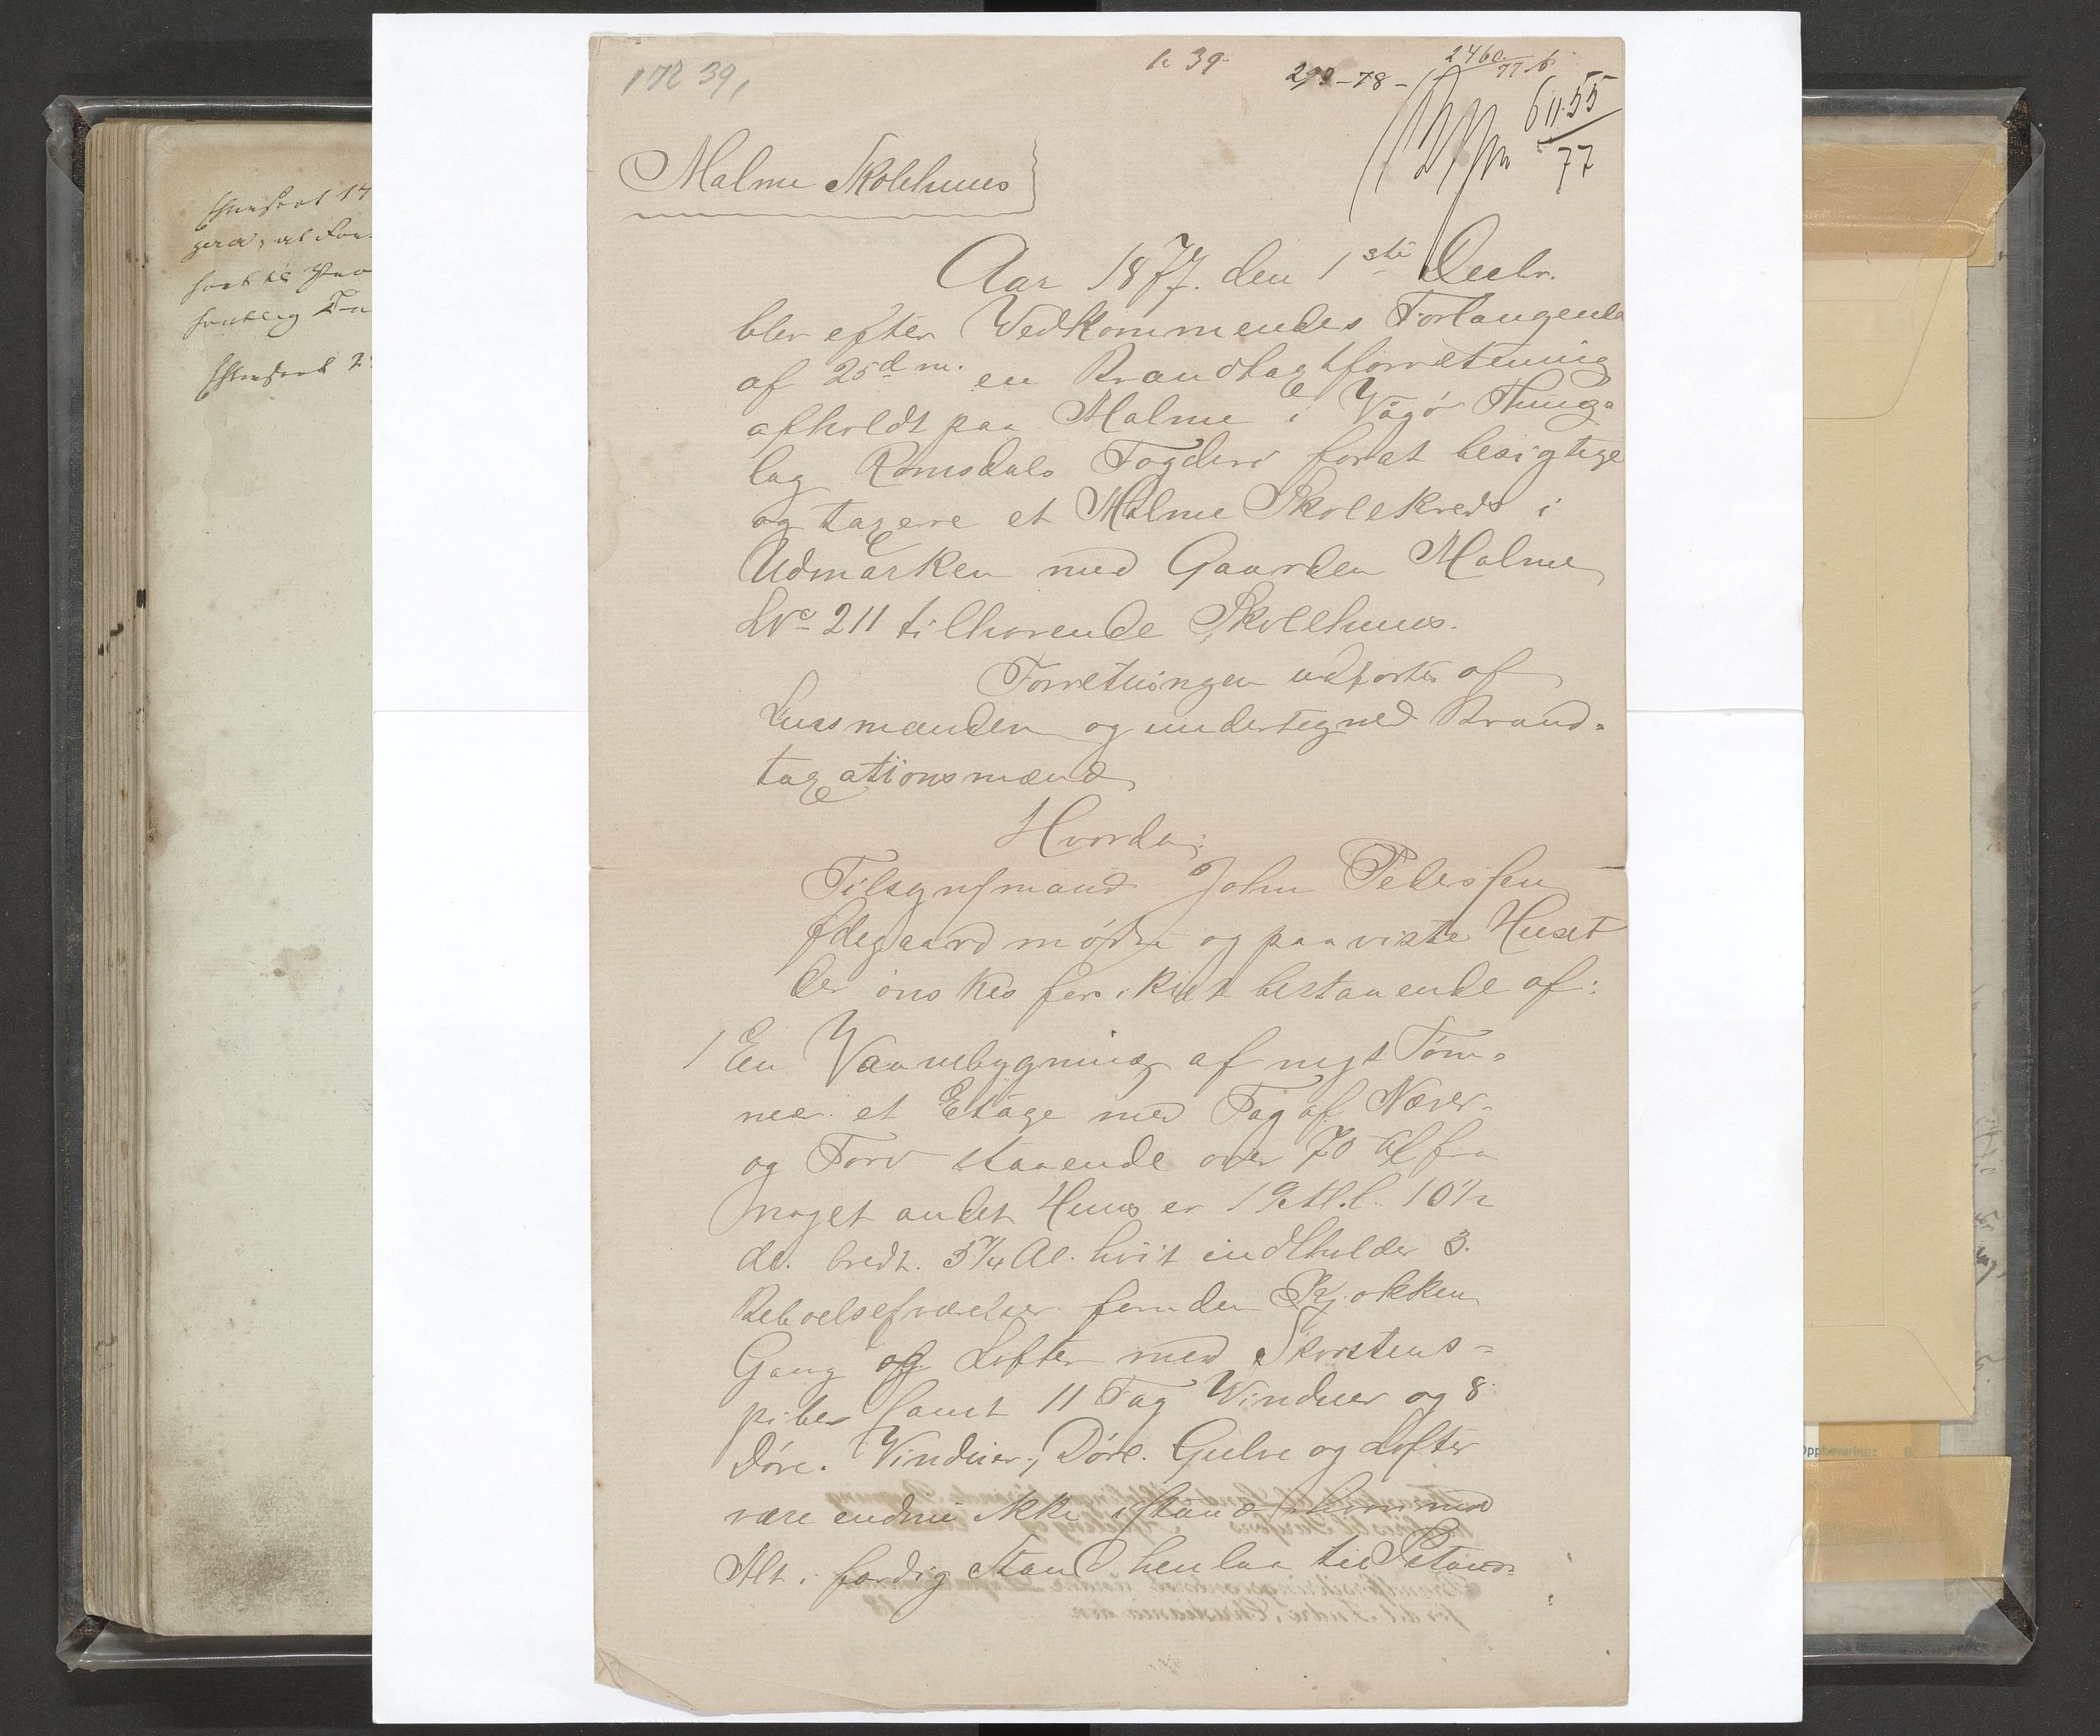 172 39,
1. 39.
293-78-
2460/77 b.
611.55/77
Malme Skolehuus
Aar 1877. den 1ste Decbr.
blev efter Vedkommendes Forlangende
af 25 d. m. en Brandtaxtforretning
afholdt paa Malme i Vågø Thing-
lag Romsdals Fogderi forat besigtige
og taxere et Malme Skolekreds i
Udmarken med Gaarden Malme
LNo 211 tilhørende Skolehuus.
Forretningen udførtes af
Lensmanden og undertegned Brand-
taxationsmænd
Hvorda:
Tilsynsmand John Pederssen
Ødegaard mødte og paaviste Huset
der ønskes forsikret bestaaende af:
1 En Vaanebygning af nyt Tøm-
mer et Etage med Tag af Næver-
og Torv staaende over 70 Al fra
noget andet Huus er 19 Al. l. 10 1/2
Al. bredt. 5 1/4 Al. høit indeholder 3.
Beboelsesværelser foruden Kjøkken
Gang og Lofter med Skorstens-
piber samt 11 Fag Vinduer og 8
Døre. Vinduer, Døre. Gulve og Lofter
vare endnu ikke istand hvormed
Alt i færdig Stand henlaa til
Opbevaring: B.